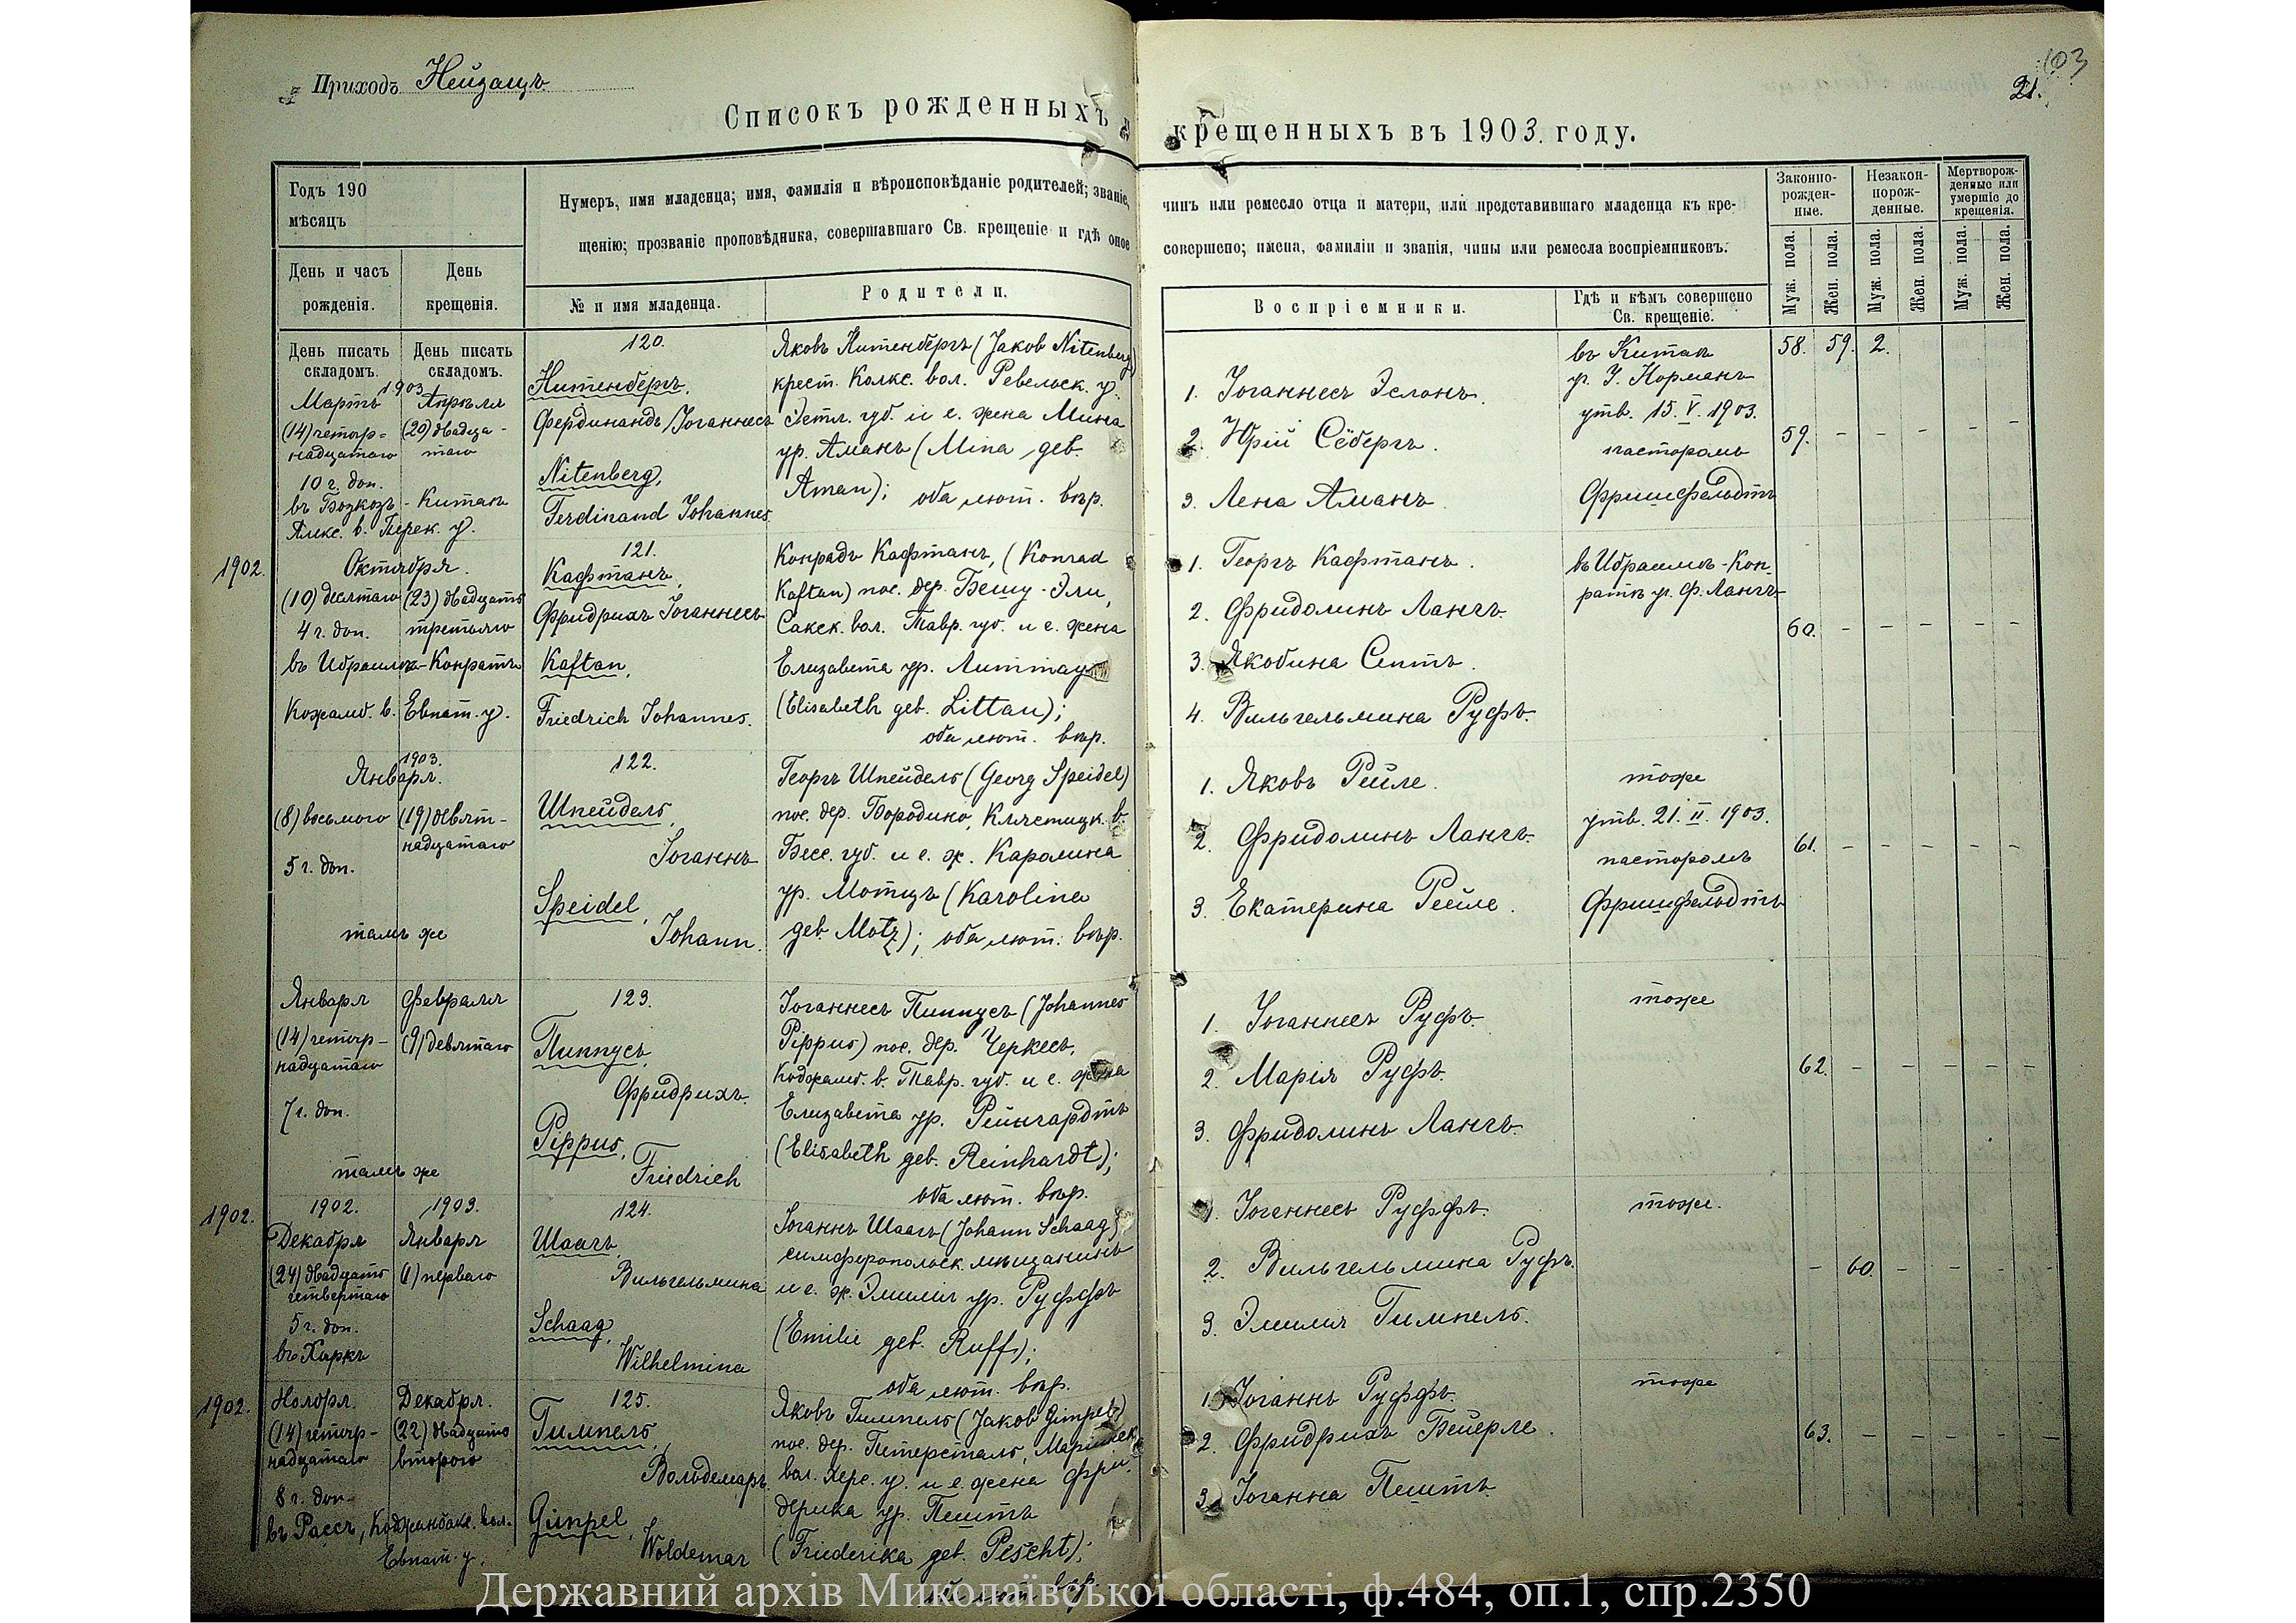 103
21.
Приходъ Нейзацъ
Списокъ рожденныхъ и крещенныхъ въ 1903. году.
Годъ 190
мѣсяцъ
День и часъ рожденія.
День крещенія.
Нумеръ, имя младенца; имя, фамилія и вѣроисповѣданіе родителей; званіе, чинъ или ремесло отца и матери, или представившаго младенца къ кре-
щенію; прозваніе проповѣдника, совершавшаго Св. крещеніе и гдѣ оное совершено; имена, фамиліи и званія, чины или ремесла воспріемниковъ.
№ и имя младенца.
Родители.
Воспріемники.
Гдѣ и кѣмъ совершено Св. крещеніе.
Законно-рожден-ные.
Незакон-норож-денные.
Мертворож-денные или умершіе до крещенія.
Муж. пола.
Жен. пола.
Муж. пола.
Жен. пола.
Муж. пола.
Жен. пола.
День писать складомъ.
День писать складомъ.
58. 59. 2.
1903
Мартъ
(14) четыр-
надцатаго
10 г. доп.
Апрѣля
(20) двадца-
таго
въ Бозкозъ-Китаѣ
Алекс. в. Перек. у.
120.
Нитенбергъ,
Фердинандъ Іоганнесъ
Nitenberg,
Ferdinand Johannes.
Яковъ Нитенбергъ (Jakob Nitenberg)
крест. Колкс. вол. Ревельск. у.
Эстл. губ. и е. жена Мина
ур. Аманъ (Mina geb.
Aman); оба лют. вѣр.
1. Іоганнесъ Эслонъ.
2. Юрій Сёбергъ.
3. Лена Аманъ.
въ Китаѣ
уч. У. Норманъ
утв. 15. V. 1903.
пасторомъ
Фришфельдтъ
59. - - - - -
1902.
Октября.
(10) десятаго
4 г. доп.
(23) двадцать
третьяго
въ Ибраимъ-Конратъ
Кожамб. в. Евпат. у.
121.
Кафтанъ,
Фридрихъ Іоганнесъ
Kaftan,
Friedrich Johannes.
Конрадъ Кафтанъ, (Konrad
Kaftan) пос. дер. Бешу-Эли,
Сакск. вол. Тавр. губ. и е. жена
Елизавета ур. Литтау
(Elisabeth geb. Littau);
оба лют. вѣр.
1. Георгъ Кафтанъ.
2. Фридолинъ Лангъ.
3. Якобина Септъ.
4. Вильгельмина Руфъ.
въ Ибраимъ-Кон-
ратѣ уч. Ф. Лангъ
60. - - - - -
1903.
Января.
(8) восьмого
5 г. доп.
(19) девят-
надцатаго
тамъ же
122.
Шпейдель,
Іоганнъ
Speidel,
Johann.
Георгъ Шпейдель (Georg Speidel)
пос. дер. Бородино, Клястицк. в.
Бесс. губ. и е. ж. Каролина
ур. Мотцъ (Karolina
geb. Motz); оба лют. вѣр.
1. Яковъ Рейле.
2. Фридолинъ Лангъ.
3. Екатерина Рейле.
тоже
утв. 21. II. 1903.
пасторомъ
Фришфельдтъ
61. - - - - -
Января
(14) четыр-
надцатаго
7 г. доп.
Февраля
(9) девятаго
тамъ же
123.
Пиппусъ,
Фридрихъ.
Pippus,
Friedrich
Іоганнесъ Пиппусъ (Johannes
Pippus) пос. дер. Черкесъ,
Коджамб. в. Тавр. губ. и е. жена
Елизавета ур. Рейнгардтъ
(Elisabeth geb. Reinhardt);
оба лют. вѣр.
1. Іоганнесъ Руфъ.
2. Марія Руфъ.
3. Фридолинъ Лангъ.
тоже
62. - - - - -
1902.
1902.
Декабря
(24) двадцать
четвертаго
5 г. доп.
въ Харкъ
1903.
Января
(1) перваго
124.
Шаагъ,
Вильгельмина
Schaag,
Wilhelmina
Іоганнъ Шаагъ (Johann Schaag)
симферопольск. мѣщанинъ
и е. ж. Эмилія ур. Руффъ
(Emilie geb. Ruff);
оба лют. вѣр.
1. Іоганнесъ Руффъ.
2. Вильгельмина Руфъ.
3. Эмилія Гимпель.
тоже.
- 60. - - - -
1902.
Ноября.
(14) четыр-
надцатаго
8 г. доп.
Декабря.
(22) двадцать
второго
въ Рассъ, Коджамбакс. вол.
Евпат. у.
125.
Гимпель,
Вольдемаръ.
Gimpel,
Woldemar
Яковъ Гимпель (Jakob Gimpel)
пос. дер. Петерсталь, Маріинск.
вол. Херс. у. и е. жена Фри-
дерика ур. Пештъ
(Friederika geb. Pescht);
оба лют. вѣр.
1. Іоганнъ Руффъ.
2. Фридрихъ Бейерле.
3. Іоганна Пештъ.
тоже
63. - - - - -
Державний архів Миколаївської області, ф.484, оп.1, спр.2350